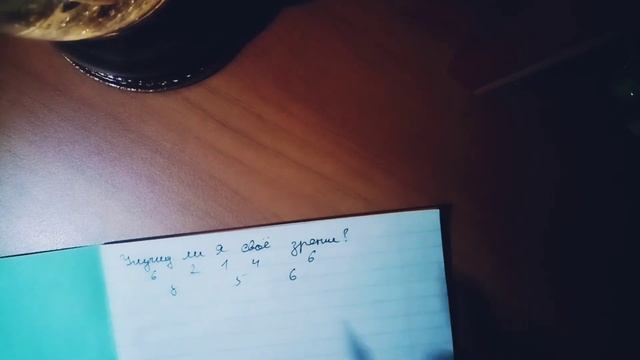 Улучшу ли я своё зрение?
6 2 1 4 6
8 5 6